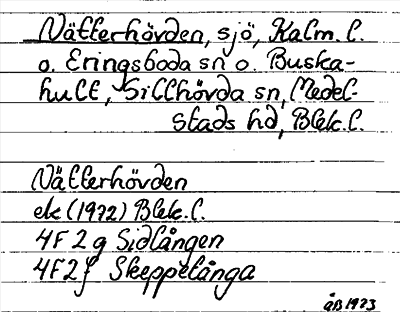 Nätterhövden, sjö, Kalm. l.
o. Eringsboda sn o. Buska-
hult, Sillhövda sn, Medel-
stads hd, Blek. l.
Nätterhövden
ek (1972) Blek. l.
4F 2 g Sidlången
4F 2 f Skeppelånga
ÅB 1973